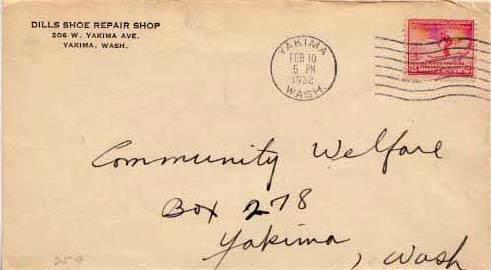 DILLS SHOE REPAIR SHOP
206 W. YAKIMA AVE.
YAKIMA, WASH.
YAKIMA
FEB 10
5 PM
1932
WASH.
Community Welfare
Box 278
Yakima, Wash
25¢